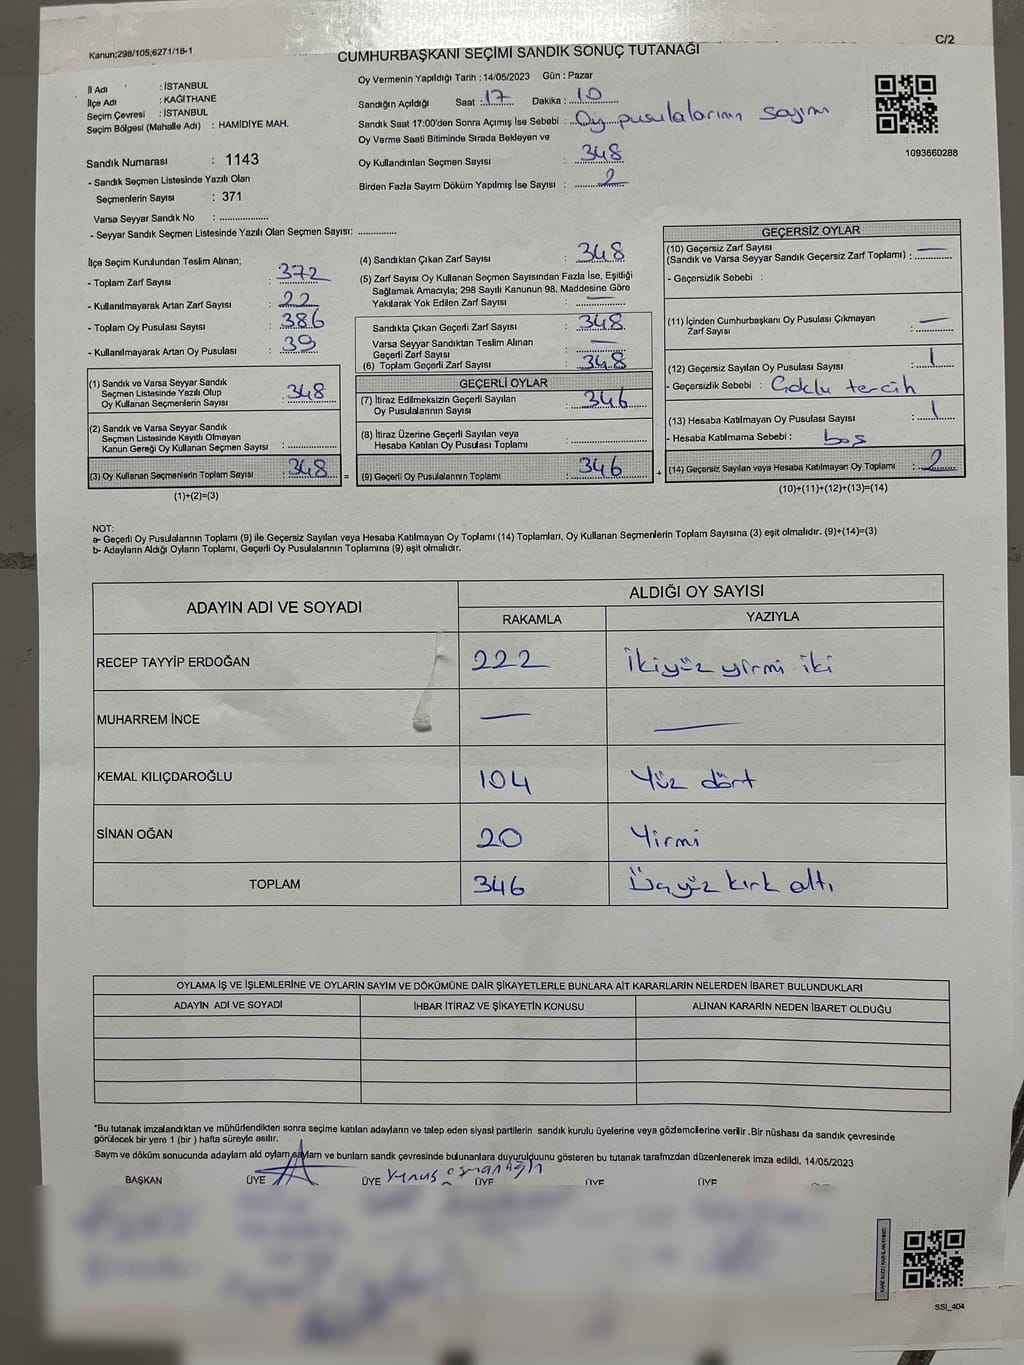 Kanun;298/105;6271/18-1
C/2
CUMHURBAŞKANI SEÇİMİ SANDIK SONUÇ TUTANAĞI
İl Adı : İSTANBUL
İlçe Adı : KAĞITHANE
Seçim Çevresi : İSTANBUL
Seçim Bölgesi (Mahalle Adı) : HAMİDİYE MAH.
Sandık Numarası : 1143
- Sandık Seçmen Listesinde Yazılı Olan
Seçmenlerin Sayısı : 371
Varsa Seyyar Sandık No : ..................
- Seyyar Sandık Seçmen Listesinde Yazılı Olan Seçmen Sayısı: ..............
Oy Vermenin Yapıldığı Tarih : 14/05/2023 Gün : Pazar
Sandığın Açıldığı Saat : 17 Dakika : 10
Sandık Saat 17:00'den Sonra Açımış İse Sebebi : Oy pusulalarının sayımı
Oy Verme Saati Bitiminde Sırada Bekleyen ve
Oy Kullandırılan Seçmen Sayısı : 348
Birden Fazla Sayım Döküm Yapılmış İse Sayısı : 2
1093660288
İlçe Seçim Kurulundan Teslim Alınan;
- Toplam Zarf Sayısı : 372
- Kullanılmayarak Artan Zarf Sayısı : 22
- Toplam Oy Pusulası Sayısı : 386
- Kullanılmayarak Artan Oy Pusulası : 39
(1) Sandık ve Varsa Seyyar Sandık
Seçmen Listesinde Yazılı Olup
Oy Kullanan Seçmenlerin Sayısı : 348
(2) Sandık ve Varsa Seyyar Sandık
Seçmen Listesinde Kayıtlı Olmayan
Kanun Gereği Oy Kullanan Seçmen Sayısı : ..............
(3) Oy Kullanan Seçmenlerin Toplam Sayısı : 348 =
(1)+(2)=(3)
(4) Sandıktan Çıkan Zarf Sayısı : 348
(5) Zarf Sayısı Oy Kullanan Seçmen Sayısından Fazla İse, Eşitliği
Sağlamak Amacıyla; 298 Sayılı Kanunun 98. Maddesine Göre
Yakılarak Yok Edilen Zarf Sayısı : —
Sandıkta Çıkan Geçerli Zarf Sayısı : 348
Varsa Seyyar Sandıktan Teslim Alınan
Geçerli Zarf Sayısı : —
(6) Toplam Geçerli Zarf Sayısı : 348
GEÇERLİ OYLAR
(7) İtiraz Edilmeksizin Geçerli Sayılan
Oy Pusulalarının Sayısı : 346
(8) İtiraz Üzerine Geçerli Sayılan veya
Hesaba Katılan Oy Pusulası Toplamı : ..............
(9) Geçerli Oy Pusulalarının Toplamı : 346 +
GEÇERSİZ OYLAR
(10) Geçersiz Zarf Sayısı
(Sandık ve Varsa Seyyar Sandık Geçersiz Zarf Toplamı) : —
- Geçersizlik Sebebi :
(11) İçinden Cumhurbaşkanı Oy Pusulası Çıkmayan
Zarf Sayısı : —
(12) Geçersiz Sayılan Oy Pusulası Sayısı : 1
- Geçersizlik Sebebi : Çoklu tercih
(13) Hesaba Katılmayan Oy Pusulası Sayısı : 1
- Hesaba Katılmama Sebebi : boş
(14) Geçersiz Sayılan veya Hesaba Katılmayan Oy Toplamı : 2
(10)+(11)+(12)+(13)=(14)
NOT:
a- Geçerli Oy Pusulalarının Toplamı (9) ile Geçersiz Sayılan veya Hesaba Katılmayan Oy Toplamı (14) Toplamları, Oy Kullanan Seçmenlerin Toplam Sayısına (3) eşit olmalıdır. (9)+(14)=(3)
b- Adayların Aldığı Oyların Toplamı, Geçerli Oy Pusulalarının Toplamına (9) eşit olmalıdır.
ADAYIN ADI VE SOYADI
ALDIĞI OY SAYISI
RAKAMLA YAZIYLA
RECEP TAYYİP ERDOĞAN 222 İkiyüz yirmi iki
MUHARREM İNCE — —
KEMAL KILIÇDAROĞLU 104 Yüz dört
SİNAN OĞAN 20 Yirmi
TOPLAM 346 Üçyüz kırk altı
OYLAMA İŞ VE İŞLEMLERİNE VE OYLARIN SAYIM VE DÖKÜMÜNE DAİR ŞİKAYETLERLE BUNLARA AİT KARARLARIN NELERDEN İBARET BULUNDUKLARI
ADAYIN ADI VE SOYADI İHBAR İTİRAZ VE ŞİKAYETİN KONUSU ALINAN KARARIN NEDEN İBARET OLDUĞU
*Bu tutanak imzalandıktan ve mühürlendikten sonra seçime katılan adayların ve talep eden siyasi partilerin sandık kurulu üyelerine veya gözlemcilerine verilir .Bir nüshası da sandık çevresinde
görülecek bir yere 1 (bir ) hafta süreyle asılır.
Sayım ve döküm sonucunda adayların aldı oyların sayıların ve bunların sandık çevresinde bulunanlara duyurulduunu gösteren bu tutanak tarafımızdan düzenlenerek imza edildi. 14/05/2023
BAŞKAN ÜYE ÜYE Yunus ÜYE ÜYE ÜYE
SSI_404